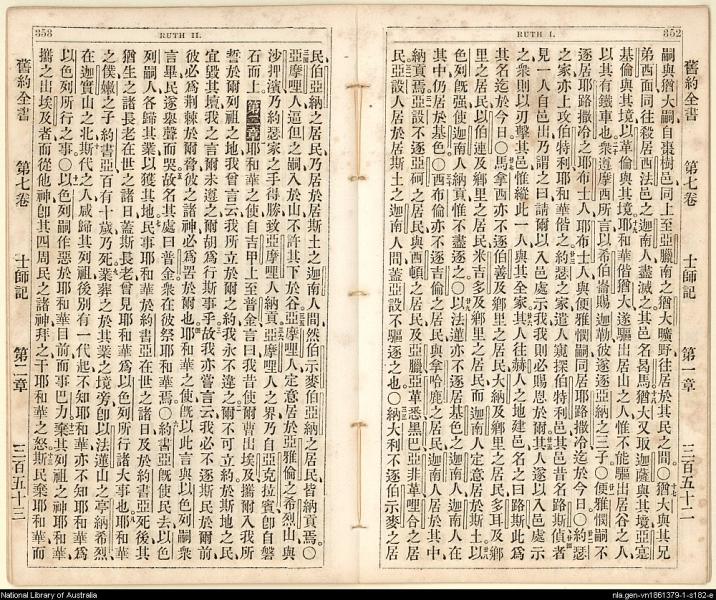 352
RUTH I.
舊約全書 第七卷 士師記 第一章 三百五十二
嗣與猶大嗣自棗樹邑同上至亞臘南之猶大曠野往居於其民之間○猶大與其兄
弟西面同往殺居西法邑之迦南人盡滅之其邑名曷馬猶大又取迦薩與其境亞寔
基倫與其境以革倫與其境耶和華偕猶大遂驅出居山之人惟不能驅出居谷之人
以其有鐵車也衆遵摩西所言以希伯崙賜迦勒彼遂逐亞納之三子○便雅憫嗣不
逐居耶路撒冷之耶布士人耶布士人與便雅憫嗣同居耶路撒冷迄於今日○約瑟
之家亦上攻伯特利耶和華偕之約瑟之家遣人窺探伯特利邑其邑昔名路斯偵者
見一人自邑出乃謂之曰請爾以入邑處示我我則必賜恩於爾其人遂以入邑處示
之衆則以刃擊其邑惟縱此一人與其全家其人往赫人之地建邑名之曰路斯此為
其名迄於今日○馬拿西亦不逐伯善及鄉里之居民大納及鄉里之居民多耳及鄉
里之居民以伯連及鄉里之居民米吉多及鄉里之居民而迦南人定意居於斯土以
色列既强使迦南人納貢惟不盡逐之○以法蓮亦不逐居基色之迦南人迦南人在
其中仍居於基色○西布倫亦不逐吉倫之居民與拿哈鹿之居民迦南人居於其中
納貢焉○亞設不逐亞柯之居民與西頓之居民及亞臘亞革悉黑巴亞非革哩合之居
民亞設人居於居斯土之迦南人間蓋亞設不驅逐之也○納大利不逐伯示麥之居
353
RUTH II.
民伯亞納之居民乃居於居斯土之迦南人間然伯示麥伯亞納之居民皆納貢焉○
亞摩哩人逼但之嗣入於山不許其下於谷亞摩哩人定意居於亞雅倫之希烈山與
沙押濱乃約瑟家之手得勝致亞摩哩人納貢亞摩哩人之界乃自亞克拉賓卽自磐
石而上 第二章 耶和華之使自吉甲上至普金言曰我昔使爾曹出埃及攜爾入我所
誓於爾列祖之地我曾言云我所立於爾之約我永不違之爾不可立約於斯地之民
宜毀其壇我之言爾未遵之爾胡為行斯事乎故我亦嘗言云我必不逐斯民於爾前
彼必為荊棘於爾脅彼之諸神必為罟於爾也耶和華之使既以此言與以色列嗣衆
言畢民遂舉聲而哭故名其處曰普金衆在彼祭耶和華焉○約書亞既使民去以色
列嗣人各歸其業以獲其地民事耶和華於約書亞在世之諸日及於約書亞死後其
猶生之諸長老在世之諸日蓋斯長老曾見耶和華為以色列所行諸大事也耶和華
之僕嫩之子約書亞百有十歲乃死葬之於其業之境旁卽以法蓮山之亭納希烈
在迦實山之北斯代之人咸歸其列祖後別有一代起不知耶和華亦不知耶和華為
以色列所行之事○以色列嗣作惡於耶和華目前而事巴力棄其列祖之神耶和華
攜之出埃及者而從他神卽其四周民之諸神拜之干耶和華之怒斯民棄耶和華而
舊約全書 第七卷 士師記 第二章 三百五十三
National Library of Australia
nla.gen-vn1861379-1-s182-e